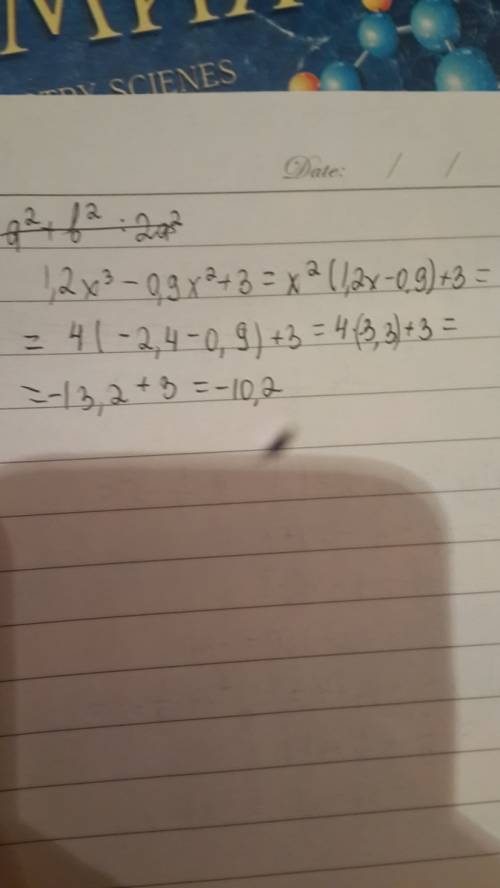 SCIENES
Date: / /
a² + b² : 2a²
1,2x³ - 0,9x² + 3 = x² (1,2x - 0,9) + 3 =
= 4 ( - 2,4 - 0,9) + 3 = 4(-3,3) + 3 =
= -13,2 + 3 = -10,2